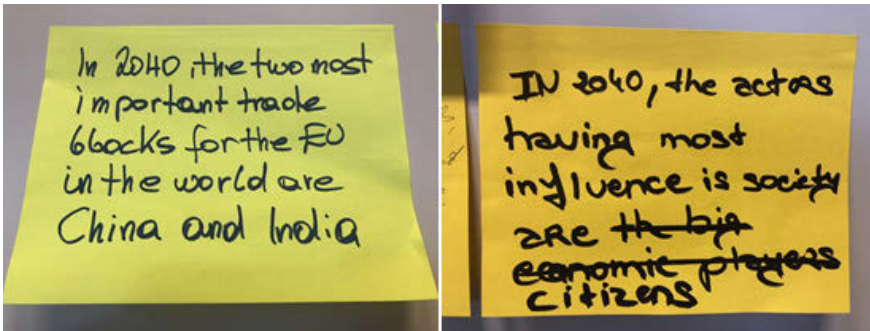 In 2040, the two most
important trade
blocks for the EU
in the world are
China and India
IN 2040, the actors
having most
influence is society
are the big
economic players
citizens